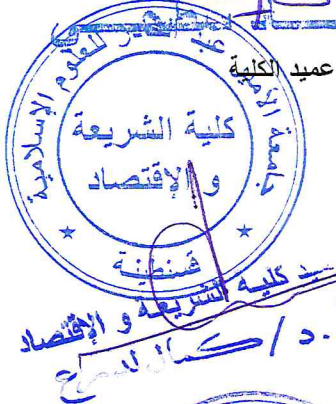 عميد الكلية
جامعة الأمير عبد القادر للعلوم الإسلامية
كلية الشريعة
و الإقتصاد
قسنطينة
عميد كلية الشريعة و الإقتصاد
د / كمال لدرع